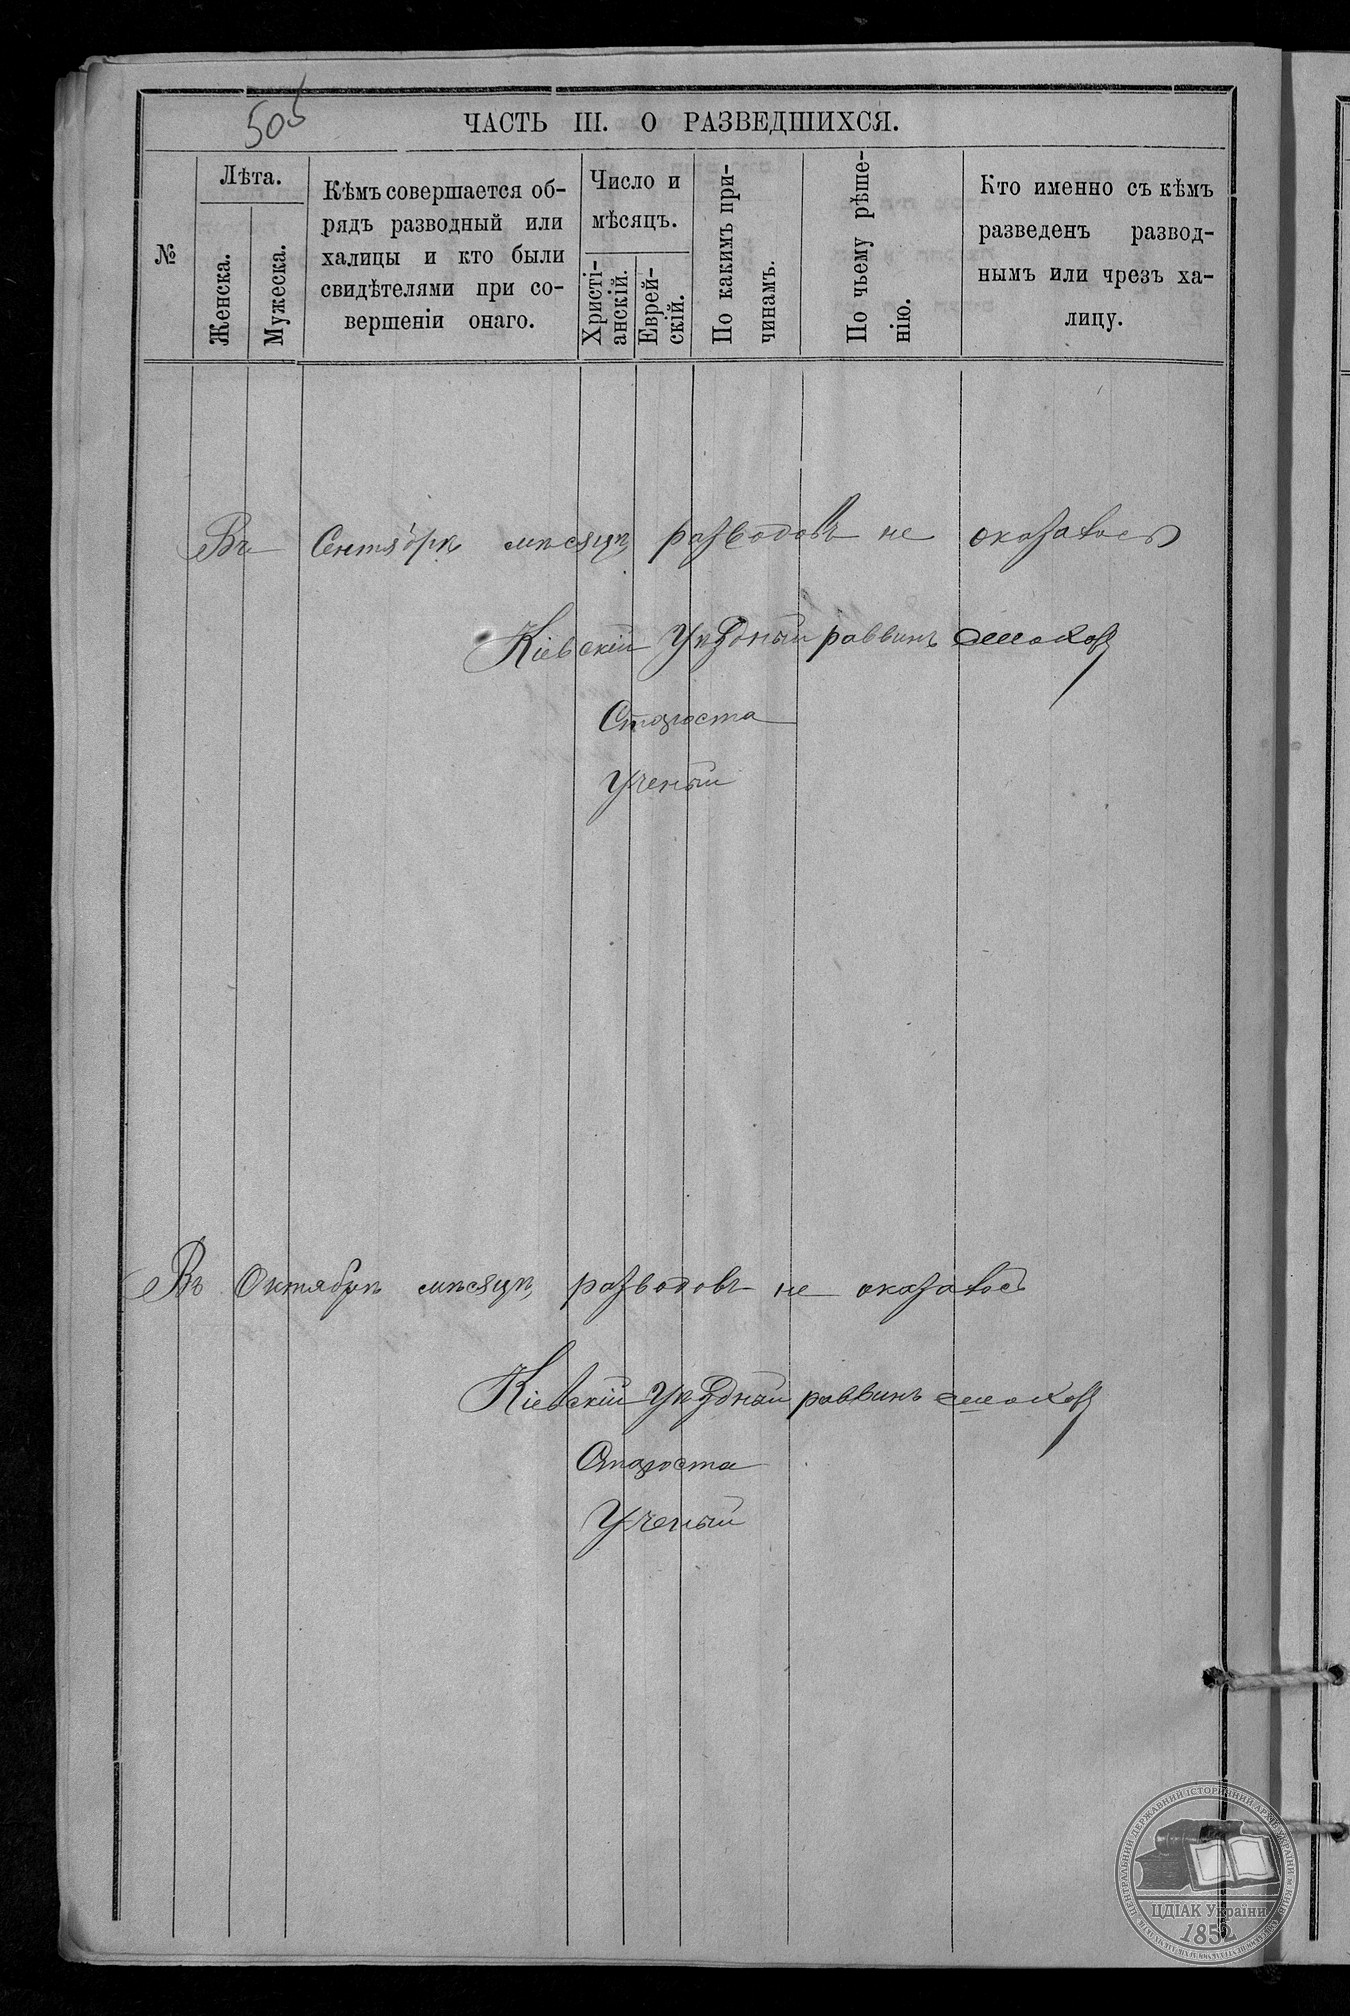 505
ЧАСТЬ III. О РАЗВЕДШИХСЯ.
№
Лѣта.
Женска.
Мужеска.
Кѣмъ совершается об-
рядъ разводный или
халицы и кто были
свидѣтелями при со-
вершеніи онаго.
Число и
мѣсяцъ.
Христі-
анскій.
Еврей-
скій.
По какимъ при-
чинамъ.
По чьему рѣше-
нію.
Кто именно съ кѣмъ
разведенъ развод-
нымъ или чрезъ ха-
лицу.
Въ Сентябрѣ мѣсяцѣ разводовъ не оказалось
Кіевскій Уѣздный раввинъ
Староста
Ученый
Въ Октябрѣ мѣсяцѣ разводовъ не оказалось
Кіевскій Уѣздный раввинъ
Староста
Ученый
ЦЕНТРАЛЬНИЙ ДЕРЖАВНИЙ ІСТОРИЧНИЙ АРХІВ УКРАЇНИ М. КИЇВ
ЦДІАК України
1852